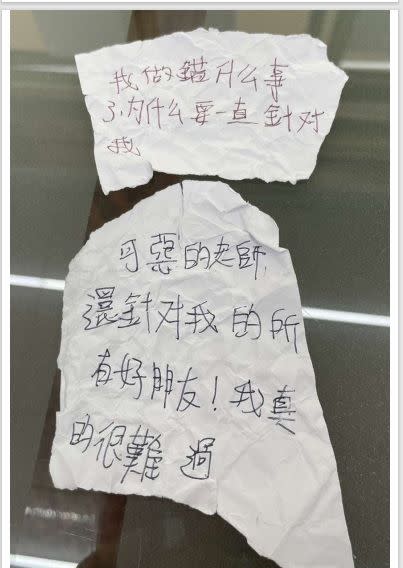 我做錯什么事
了,为什么要一直針对
我
可惡的老師,
還針对我的所
有好朋友!我真
的很難過